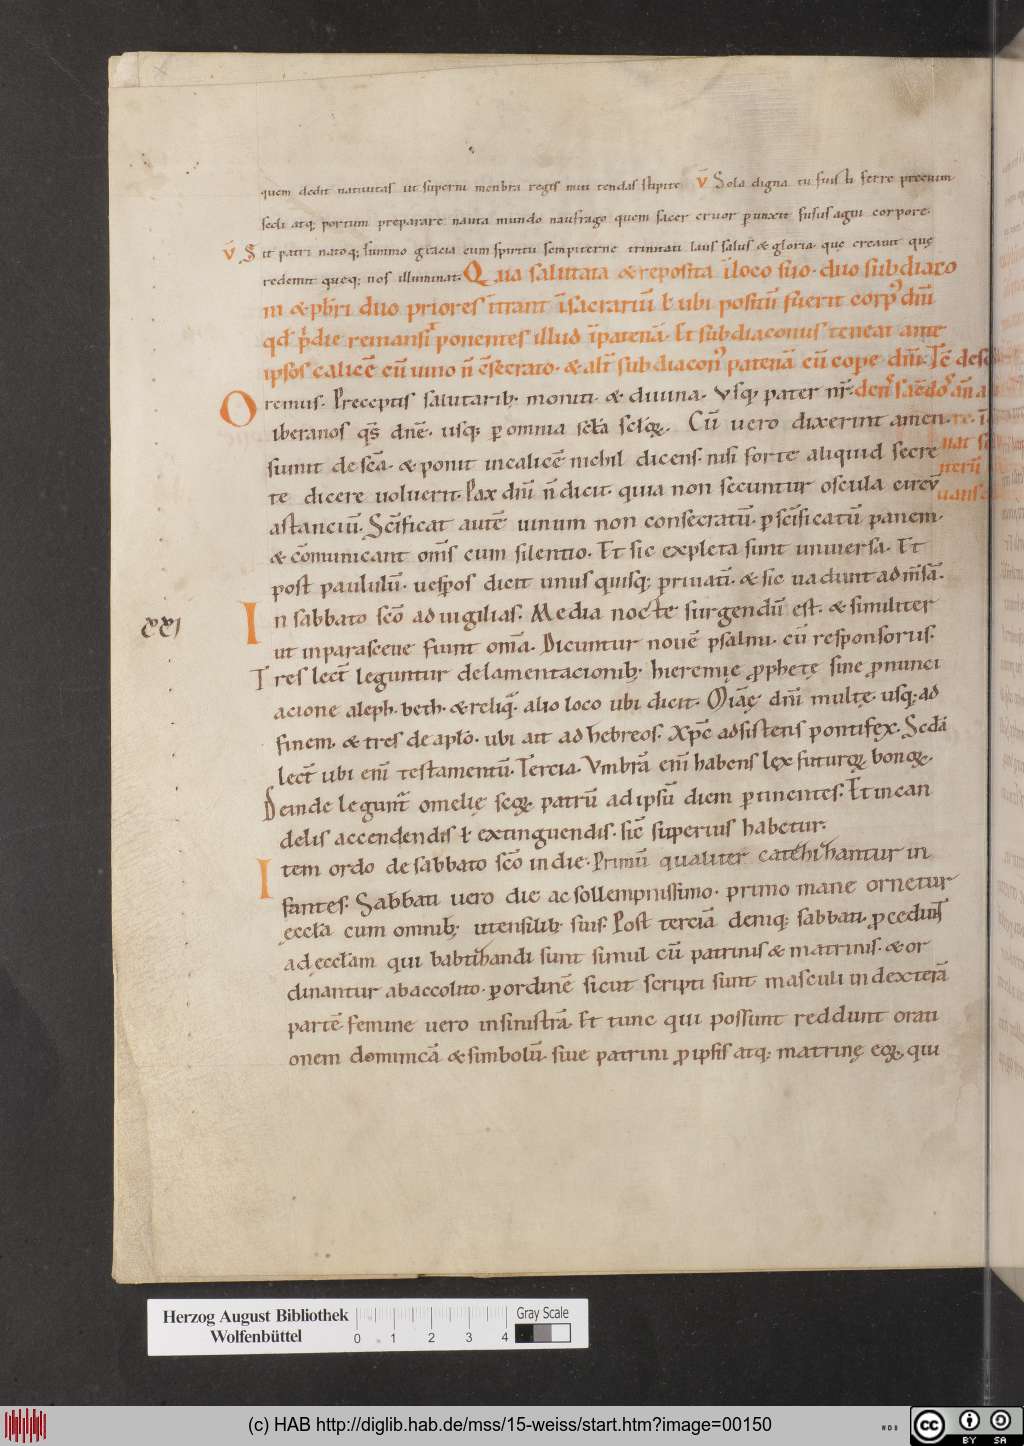 quem dedit natiuitas ut superni menbra regis miti tendas stipite. v̄ Sola digna tu fuisti ferre precium
secli atq; portum preparare nauta mundo naufrago quem sacer cruor p unxit fusus agni corpore.
v̄ Sit patri natoq; summo gracia cum spiritu sempiterne trinitati laus salus & gloria que creauit quę
redemit queq; nos illuminat. Qua salutata & reposita ī loco suo. duo subdiaco
ni & pb̄ri duo priores ītrant ī sacrariū ł ubi positū fuerit corp' dn̄i
qd' p'die remansit ponentes illud ī patenā. Et subdiaconus teneat ante
ipsos calicē cū uino n̄ cōsecrato. & alt̄ subdiacon' patenā cū corpe dn̄i.
Oremus. Preceptis salutarib; moniti. & diuina. Vsq; pater nr̄.
iberanos qs̄ dn̄e. usq; p omnia scl̄a sclo̧ꝝ. Cū uero dixerint amen.
sumit de scā. & ponit in calicē nichil dicens. nisi forte aliquid secre
te dicere uoluerit. Pax dn̄i n̄ dicit. quia non secuntur oscula circū
astanciū. Sc̄ificat autē uinum non consecratū. p sc̄ificatū panem.
& cōmunicant om̄s cum silentio. Et sic expleta sunt uniuersa. Et
post paululū. uesp̄os dicit unus quisq; priuatī. & sic uadunt ad m̄sā.
xxi
In sabbato scō ad uigilias. Media nocte surgendū est. & similiter
ut in parasceue fiunt om̄a. Dicuntur nouē psalmi. cū responsoriis.
Tres lect̄ leguntur de lamentacionib; hieremię pphetę sine pnunci
acione aleph. beth. & reliq̄. alio loco ubi dicit. Miāę dn̄i multę. usq; ad
finem. & tres de aplō. ubi ait ad hebreos. Xpc̄ adsistens pontifex. Scdā
lect̄ ubi em̄ testamentū. Tercia. Vmbrā em̄ habens lex futuroꝝ bonoꝝ.
Deinde legunt̄ omelię scoꝝ patrū ad ipsū diem ptinentes. Et in can
delis accendendis ł extinguendis. sic superius habetur.
Item ordo de sabbato scō in die. Primū qualiter catehihantur in
fantes. Sabbati uero die ac sollempnissimo. primo mane ornetur
ęccl̄a cum omnib; utensilib; suis. Post terciā deniq; sabbati. pcedunt
ad ęccl̄am qui babtihandi sunt simul cū patrinis & matrinis. & or
dinantur ab accolito. p ordinē sicut scripti sunt masculi in dexterā
partē femine uero in sinistrā. Et tunc qui possunt reddunt orati
onem dominicā & simbolū. siue patrini p ipsis atq; matrinę eoꝝ, qui
Herzog August Bibliothek
Wolfenbüttel
0 1 2 3 4
Gray Scale
(c) HAB http://diglib.hab.de/mss/15-weiss/start.htm?image=00150
WDB
cc
BY SA